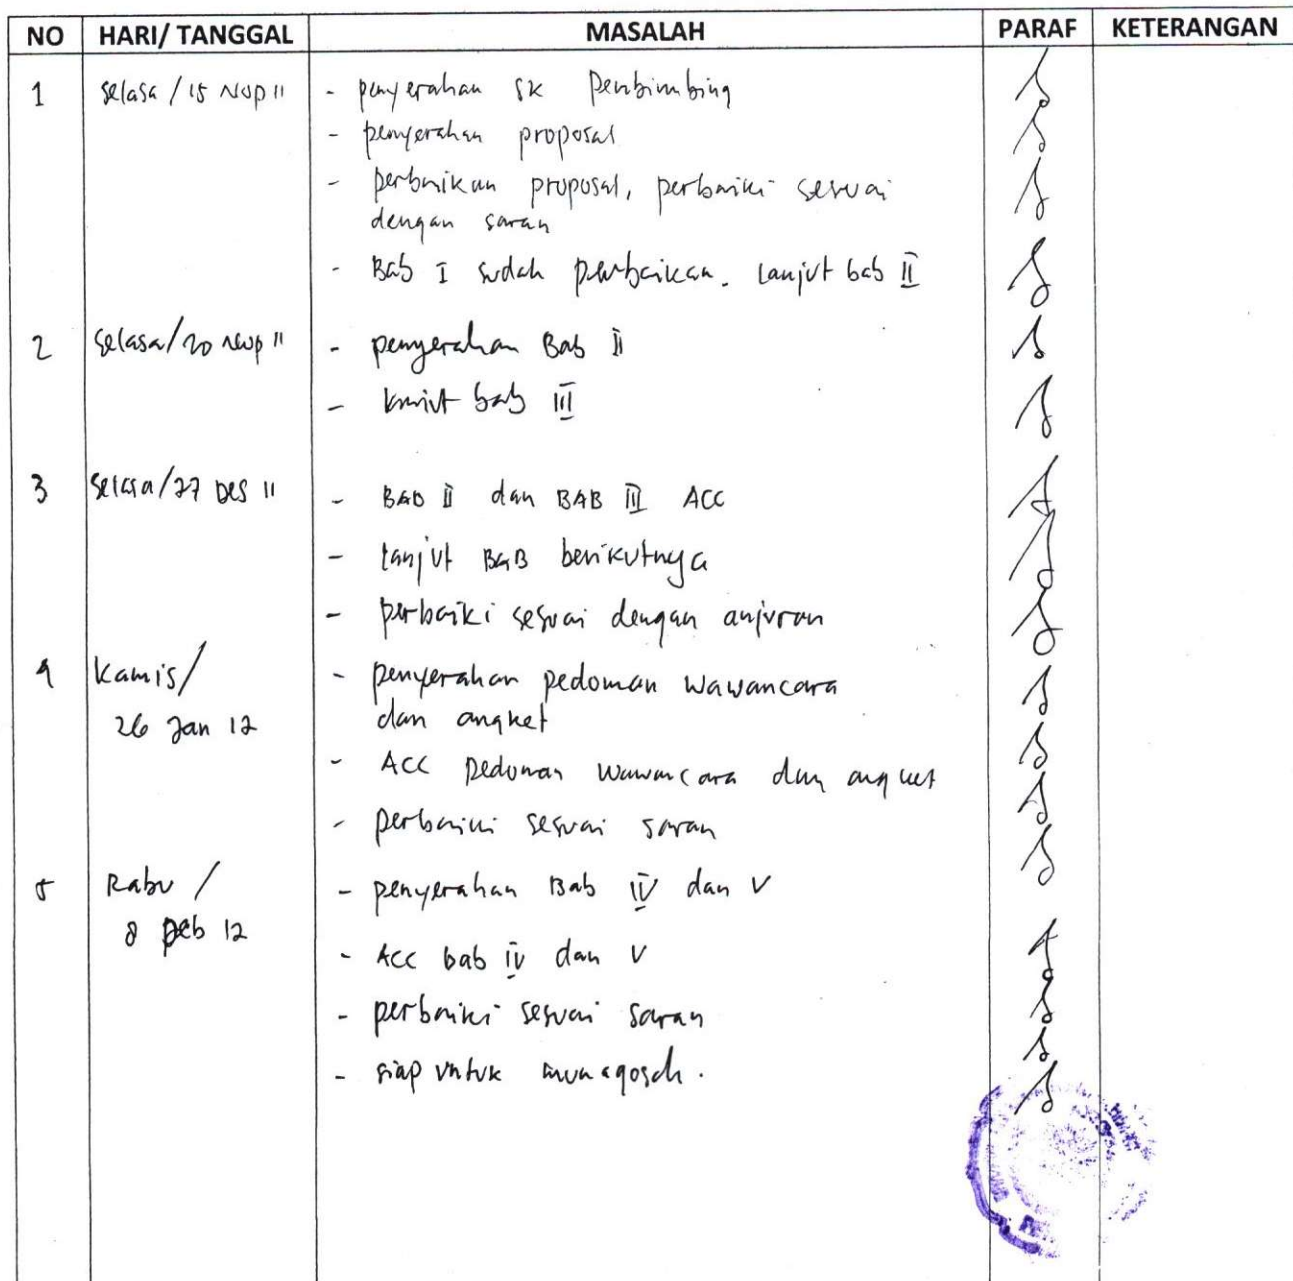 NO HARI/ TANGGAL MASALAH PARAF KETERANGAN
1 Selasa / 15 Nop 11 - penyerahan SK Pembimbing
- penyerahan proposal
- perbaikan proposal, perbaiki sesuai
dengan saran
- Bab I sudah perbaikan. Lanjut bab II
2 Selasa/20 Nop 11 - penyerahan Bab II
- bab III
3 Selasa/27 Des 11 - BAB II dan BAB III ACC
- lanjut BAB berikutnya
- perbaiki sesuai dengan anjuran
4 Kamis/ - penyerahan pedoman wawancara
26 Jan 12 dan angket
- ACC pedoman wawancara dan angket
- perbaiki sesuai saran
5 Rabu / - penyerahan Bab IV dan V
8 Peb 12
- ACC bab IV dan V
- perbaiki sesuai saran
- siap untuk munaqosah.